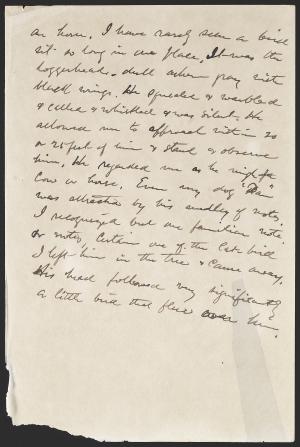 an hour. I have rarely seen a bird
sit so long in one place. It was the
loggerhead. dull ashen gray with
black wings. He squeaked & warbled
& called & whistled & was silent. He
allowed me to approach within 20
or 25 feet of him & stand & observe
him. He regarded me as he might a
cow or horse. Even my dog "Dan"
was attracted by his medley of notes.
I recognized but one familiar note
or notes, certain one of the Cat-bird
I left him in the tree & came away.
His head followed very significantly
a little bird that flew over him.